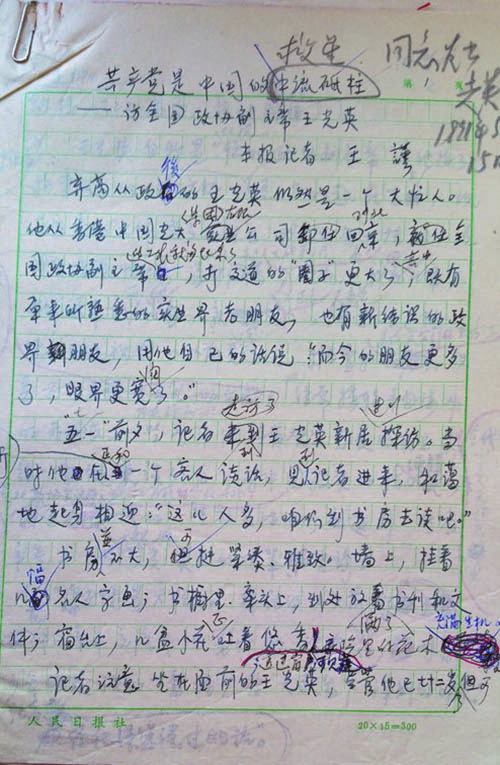 同志
1991
共产党是中国的中流砥柱
——访全国政协副主席王光英
本报记者 王谨
弃商从政后的王光英似乎是一个大忙人。
他从香港中国光大实业公司卸任回京,就任全
国政协副主席,打交道的“圈子”更大了,既有
原来所熟悉的实业界老朋友,也有新结识的政
界朋友,用他自己的话说:“而今的朋友更多
了,眼界更宽了。”
“五一”前夕,记者来到王光英新居探访。当
时他正和一个客人谈话,见记者进来,和蔼
地起身相迎:“这儿人多,咱们到书房去谈吧。”
书房不大,但挺紧凑、雅致。墙上,挂着
几幅名人字画;书橱里、案头上,到处放着书刊和文
件;窗台上,几盆小花正吐着悠香
充满生机
记者注意坐在面前的王光英,尽管他已七十二岁,但
人民日报社
20×15=300